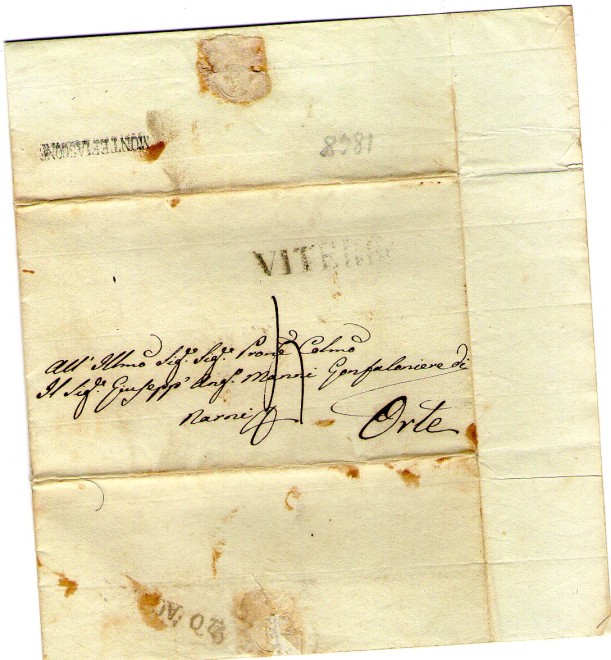 MONTEFIASCONE
1868
VITERBO
All' Illmo Sigr. Sigr. Prone Colmo
Il Sigr. Giusepp' Ang. Manni Gonfaloniere di
Narni Orte
20 AG